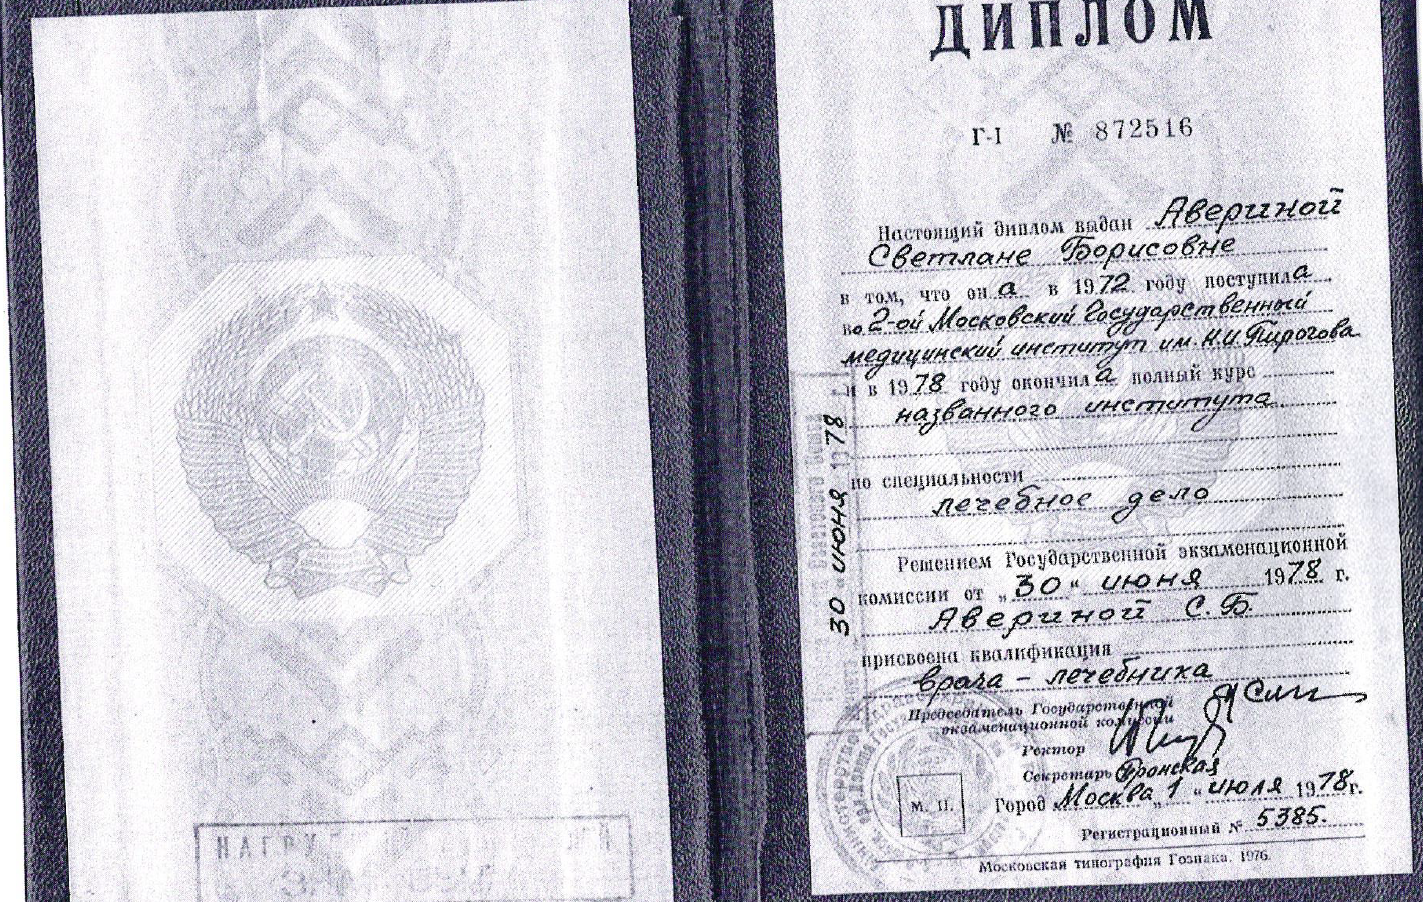 ДИПЛОМ
Г-I № 872516
Настоящий диплом выдан Авериной
Светлане Борисовне
в том, что он а в 1972 году поступила
во 2-ой Московский Государственный
медицинский институт им. Н.И. Пирогова
и в 1978 году окончила полный курс
названного института
по специальности
лечебное дело
Решением Государственной экзаменационной
комиссии от „30“ июня 1978 г.
Авериной С.Б.
присвоена квалификация
врача - лечебника
Председатель Государственной
экзаменационной комиссии
Ректор
Секретарь Гронская
М. П.
Город Москва „1“ июля 1978 г.
Регистрационный № 5385.
Московская типография Гознака. 1976.
30 июня 1978